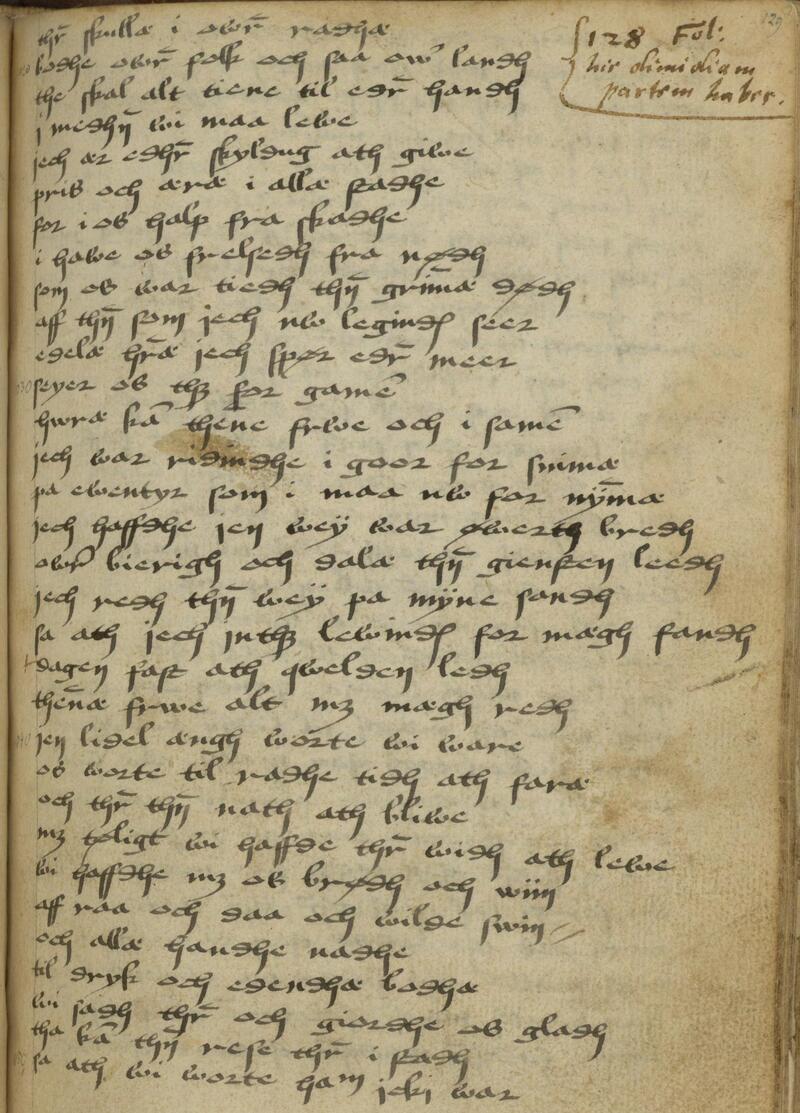 thr̄ skullæ i owr̄ radhæ
bodhe owr̄ folk och saa ow̄ landh
the skal alt tiene til edr̄ handh
j medhn̄ wi maa lewe
jech ær edhr̄ skyldug ath giwe
pris och æræ i allæ stadhe
for i os halp fra skadhe
i hawe os frelsedh fra nødh
som os war tiedh thn̄ grīmæ dødh
aff thn̄ som jech nw legindꝭ seer
edelæ hr̄æ jech spør edr̄ meer
seyer os thꝫ for gamē
hwræ kā thēne frwe och i samē
jech war ridindhe i goor for snimæ
pa ewentyr som i maa nw for nȳmæ
jech haffdhe jen weÿ war øwerth bredh
owr̄ bierigh och dalæ thn̄ giensten leedh
jech redh thn̄ weÿ pa mÿne sandh
sa ath jech jnthꝫ lewindꝭ for mægh fandh
dagen fast ath qwelden ledh
thēnæ frwe alt mꝫ mægh redh
jen lidel ængh worte wi ware
os worte til radhe tidh ath faræ
och thr̄ thn̄ nath ath bliwe
mꝫ tøligt wi haffde thr̄ widh ath lewe
wi haffdhe mꝫ os brødh och wiin
aff raa och daa och wilde swin
och allæ handhe nadhe
til dryk och edendhæ bodhæ
wi sadh thr̄ och giordhe os gladh
tha kā thn̄ rese thr̄ i stadh
sa ath wi worte ham jcki war
128 Fol:
hic dimidiam
partem habet.
129